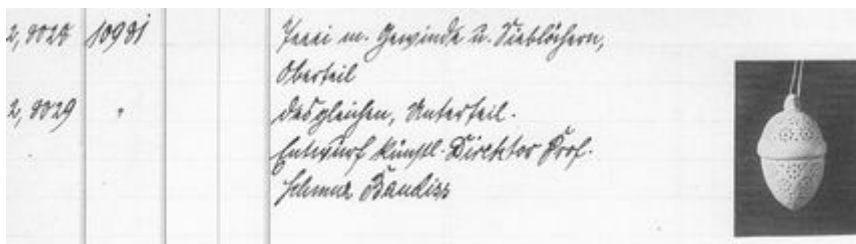 2, 9028 10981 Teeei m. Gewinde u. Sieblöchern,
Oberteil
2, 9029 " desgleichen, Unterteil.
Entwurf künstl. Direktor Prof.
Schmuz Baudiss